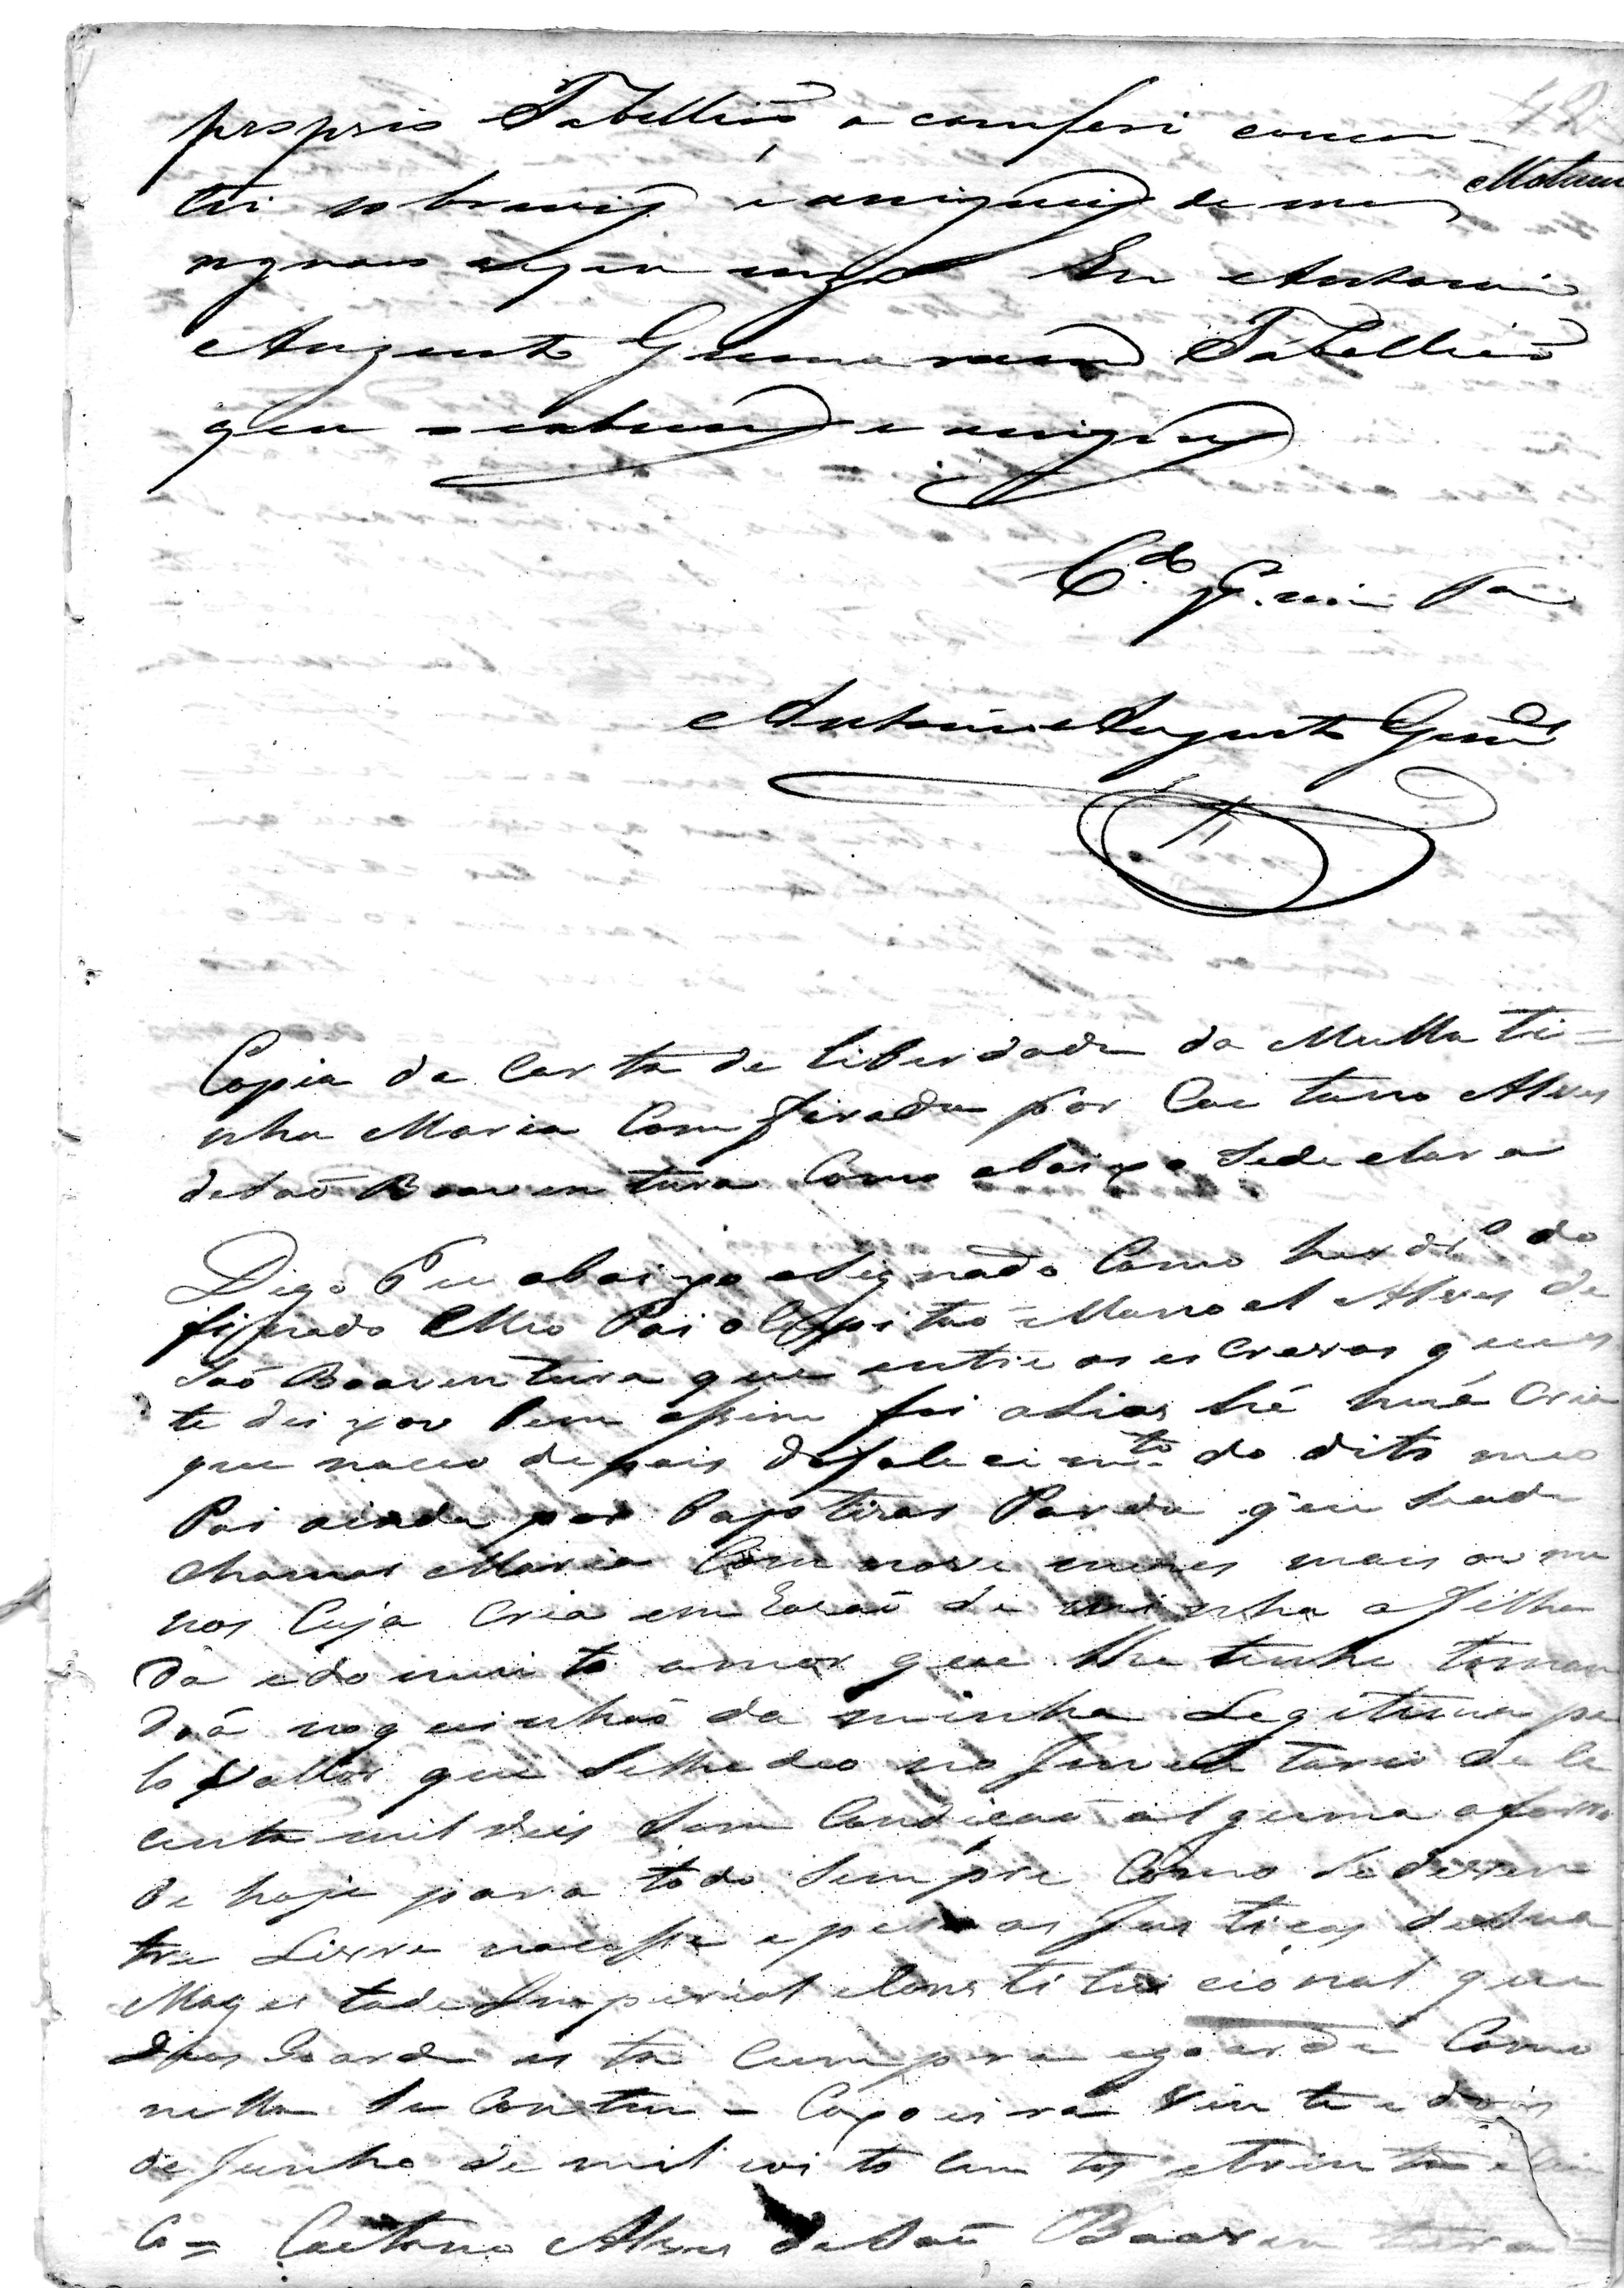 proprio Tabellião a comferi concer-
tei sobscrevy e assigney de meos
signaes seguintes Eu Antonio
Augusto Guimaraens Tabellião
que o sobscrevy e assigney
C.do
Antonio Augusto Guim.es
Copia da Carta de liberdade da Mullati=
nha Maria Comferada por Caetanno Alves
desaõ Boaventura Como abaixo Sedeclara
Digo Eu abaixo asignado Como herdr.o do
finado Meo Pai o Cappitaõ Manoel Alves de
Saõ Boaventura que entre os escravos que es
te deixou bem assim foi a hé huã Cria
que naceo depois dofaleeim.to do dito meo
Pai ainda por Baptizar Parda que Sehade
chamar Maria Com nove mezes mais ou me
nos Cuja Cria em Razaõ de minha afilha
da e do muito amor que lhe tenho toman
doã noquinhaõ da minha Legitima pe
lo Vallor que Selhedeo no Inventario de Ce
centa mil reis Sem Condicaõ alguma aforro
de hoje para todo Sempre Como Sedeven
tre Livre nacesse epesso as Justiças deSua
Magestade Imperial Constitucional que
Deos Guarde esta Cumpra egoarde Como
nella Se Contem - Caxoeira Vinte e dois
de Junho de mil oito Centos etrinta e Cin
Co = Caetano Alves deSaõ Boaventura =